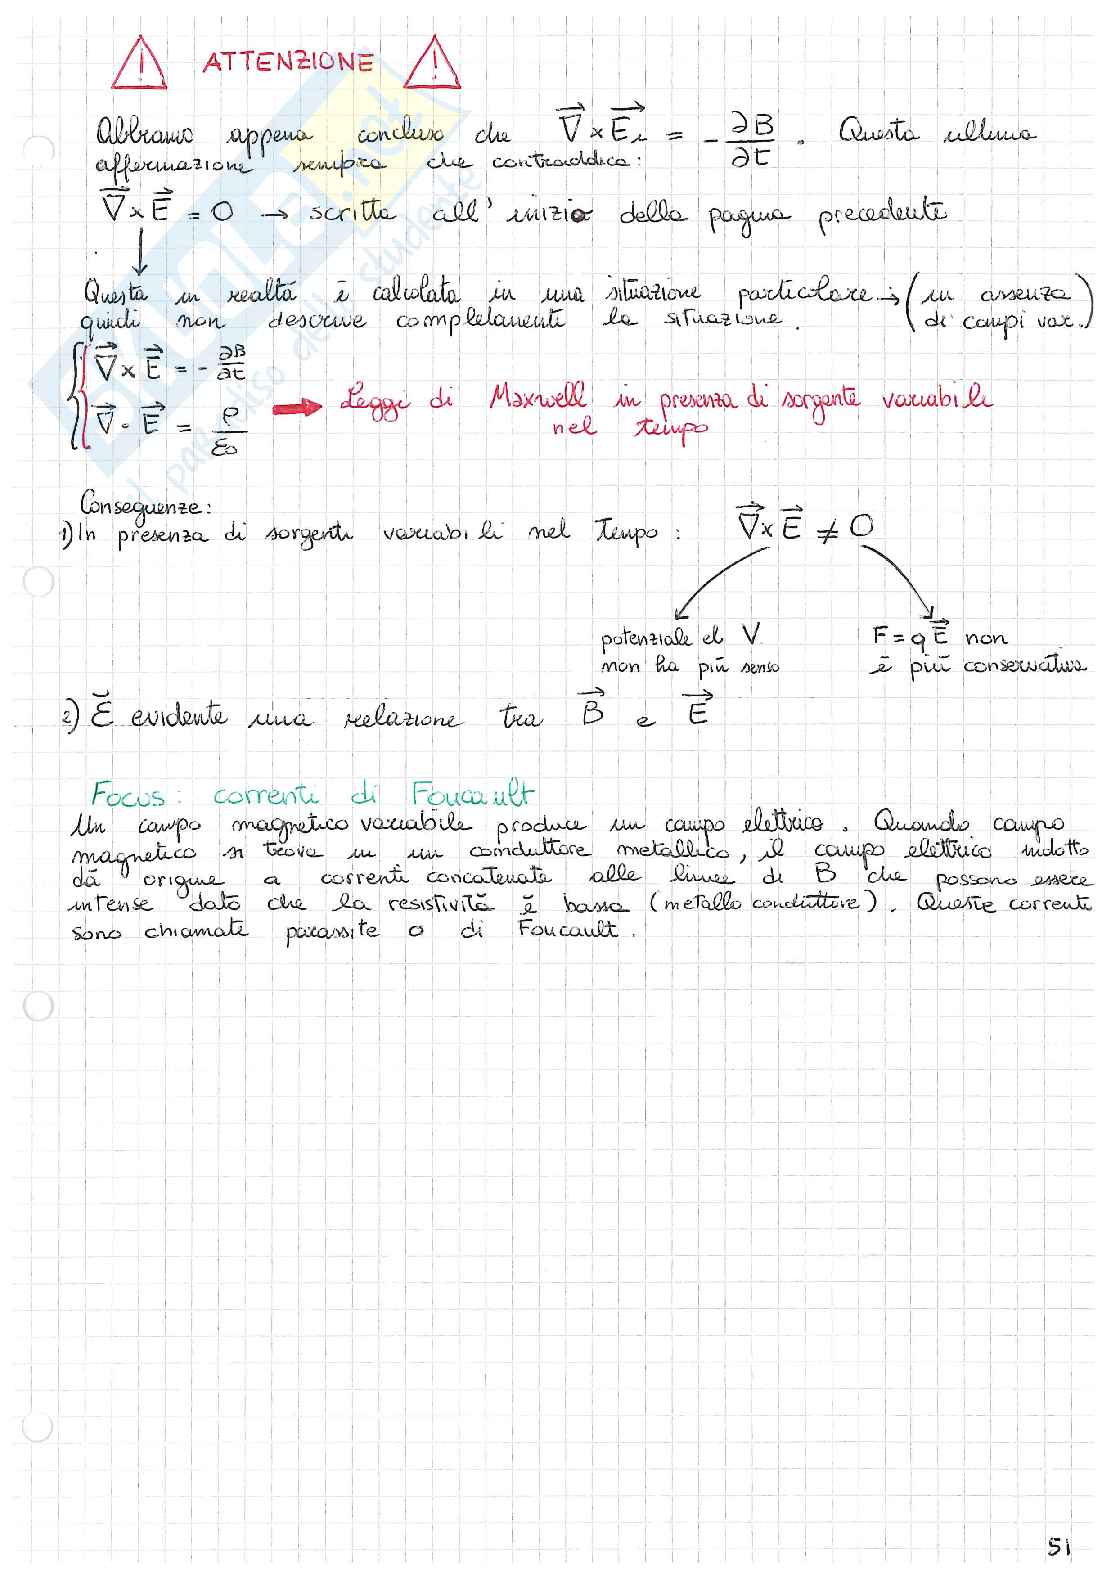 ATTENZIONE
Abbiamo appena concluso che ∇×Ei = - ∂B/∂t . Questa ultima
affermazione sembra che contraddica:
∇×E = 0 → scritta all' inizio della pagina precedente
Questa in realtà è calcolata in una situazione particolare → (in assenza
quindi non descrive completamente la situazione. di campi var.)
∇×E = - ∂B/∂t
∇·E = ρ/ε0
→ Leggi di Maxwell in presenza di sorgente variabili
nel tempo
Conseguenze:
1) In presenza di sorgenti variabili nel tempo : ∇×E ≠ 0
potenziale el V F = qE non
non ha più senso è più conservativa
2) È evidente una relazione tra B e E
Focus: correnti di Foucault
Un campo magnetico variabile produce un campo elettrico. Quando campo
magnetico si trova in un conduttore metallico, il campo elettrico indotto
dà origine a correnti concatenate alle linee di B che possono essere
intense dato che la resistività è bassa (metallo conduttore). Queste correnti
sono chiamate parassite o di Foucault.
51